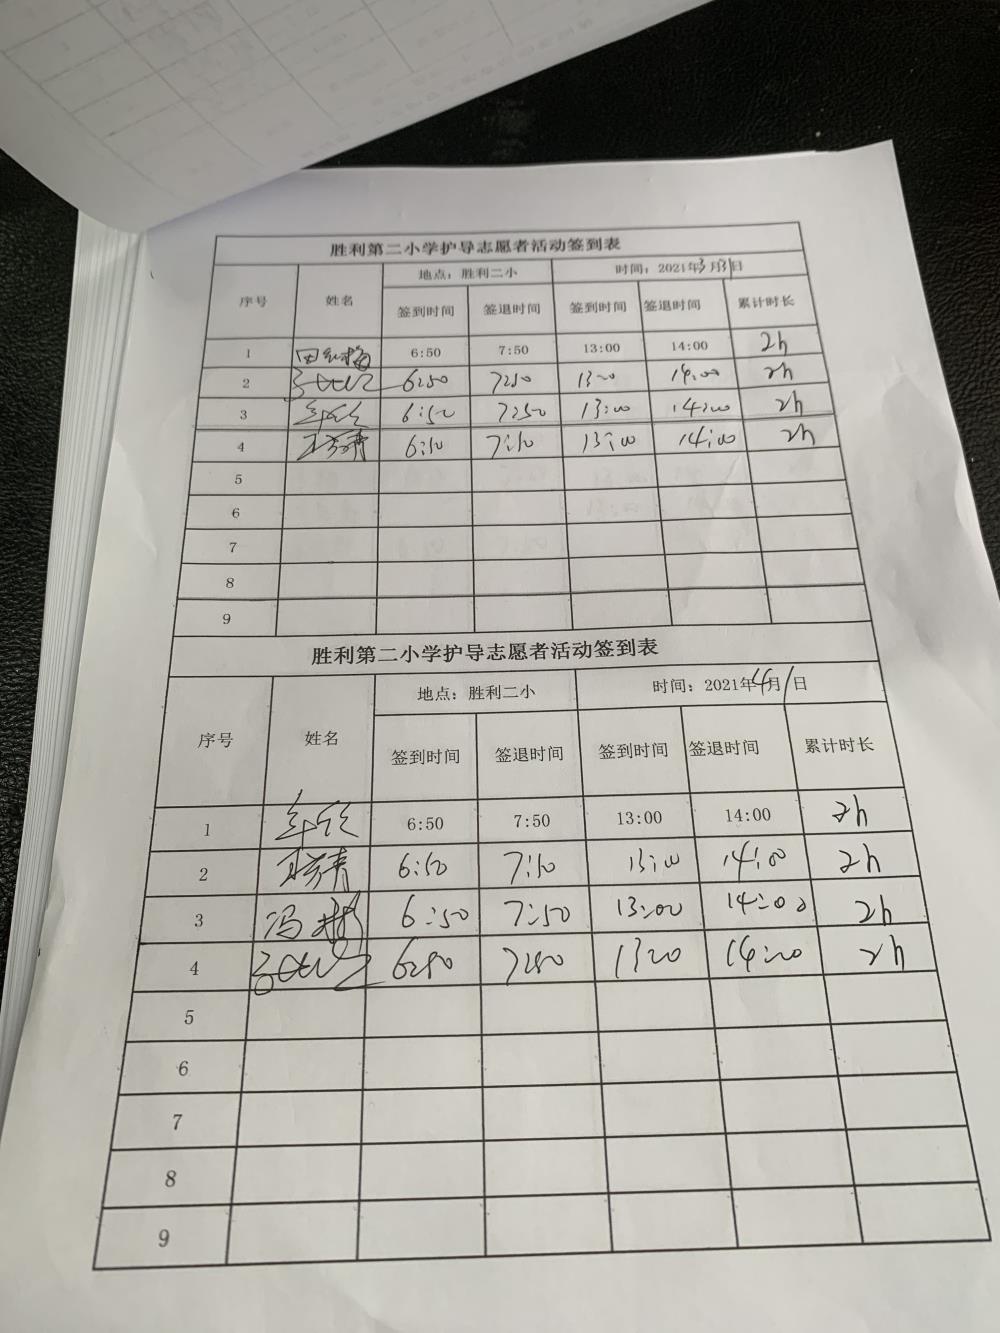 胜利第二小学护导志愿者活动签到表
地点：胜利二小 时间：2021年3月31日
序号 姓名 签到时间 签退时间 签到时间 签退时间 累计时长
1 6:50 7:50 13:00 14:00 2h
2 6:50 7:50 13:00 14:00 2h
3 6:50 7:50 13:00 14:00 2h
4 6:50 7:50 13:00 14:00 2h
5
6
7
8
9
胜利第二小学护导志愿者活动签到表
地点：胜利二小 时间：2021年4月1日
序号 姓名 签到时间 签退时间 签到时间 签退时间 累计时长
1 6:50 7:50 13:00 14:00 2h
2 6:50 7:50 13:00 14:00 2h
3 6:50 7:50 13:00 14:00 2h
4 6:50 7:50 13:00 14:00 2h
5
6
7
8
9